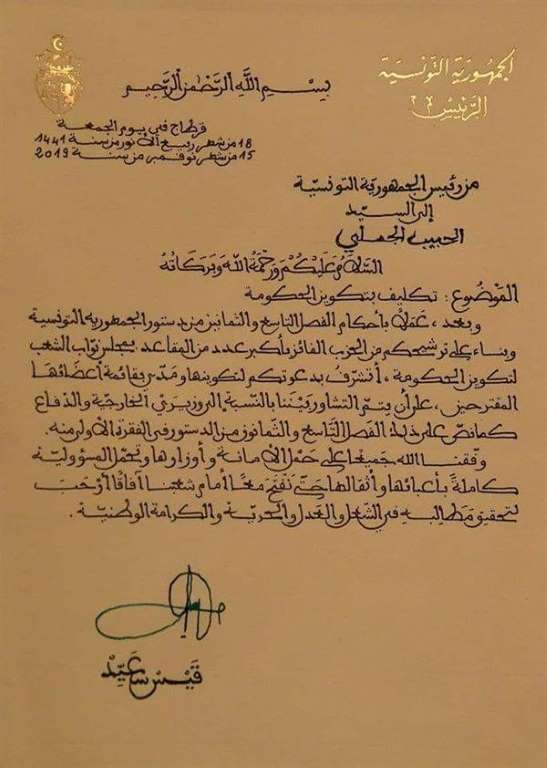 الجمهورية التونسية
الرئيس
بسم اللّه الرّحمٰن الرّحيم
قرطاج في يوم الجمعة
18 من شهر ربيع الأنور من سنة 1441
15 من شهر نوفمبر من سنة 2019
من رئيس الجمهورية التونسيّة
إلى السيّد
الحبيب الجملي
السّلام عليكم ورحمة اللّه وبركاته
الموضوع : تكليف بتكوين الحكومة
وبعد، عملا بأحكام الفصل التاسع والثمانين من دستور الجمهورية التونسية
وبناء على ترشيحكم من الحزب الفائز بأكبر عدد من المقاعد بمجلس نواب الشعب
لتكوين الحكومة، أتشرّف بدعوتكم لتكوينها ومدّي بقائمة أعضائها
المقترحين، على أن يتمّ التشاور بيننا بالنّسبة إلى وزيري الخارجيّة والدفاع
كما نصّ على ذلك الفصل التّاسع والثمانون من الدستور في الفقرة الأولى منه.
وفّقنا الله جميعًا على حمل الأمانة وأوزارها وتحمّل المسؤوليّة
كاملةً بأعبائها وأثقالها حتّى نفتح معًا أمام شعبنا آفاقًا أرحب
لتحقيق مطالبه في الشّغل والعدل والحريّة والكرامة الوطنيّة.
قيس سعيّد